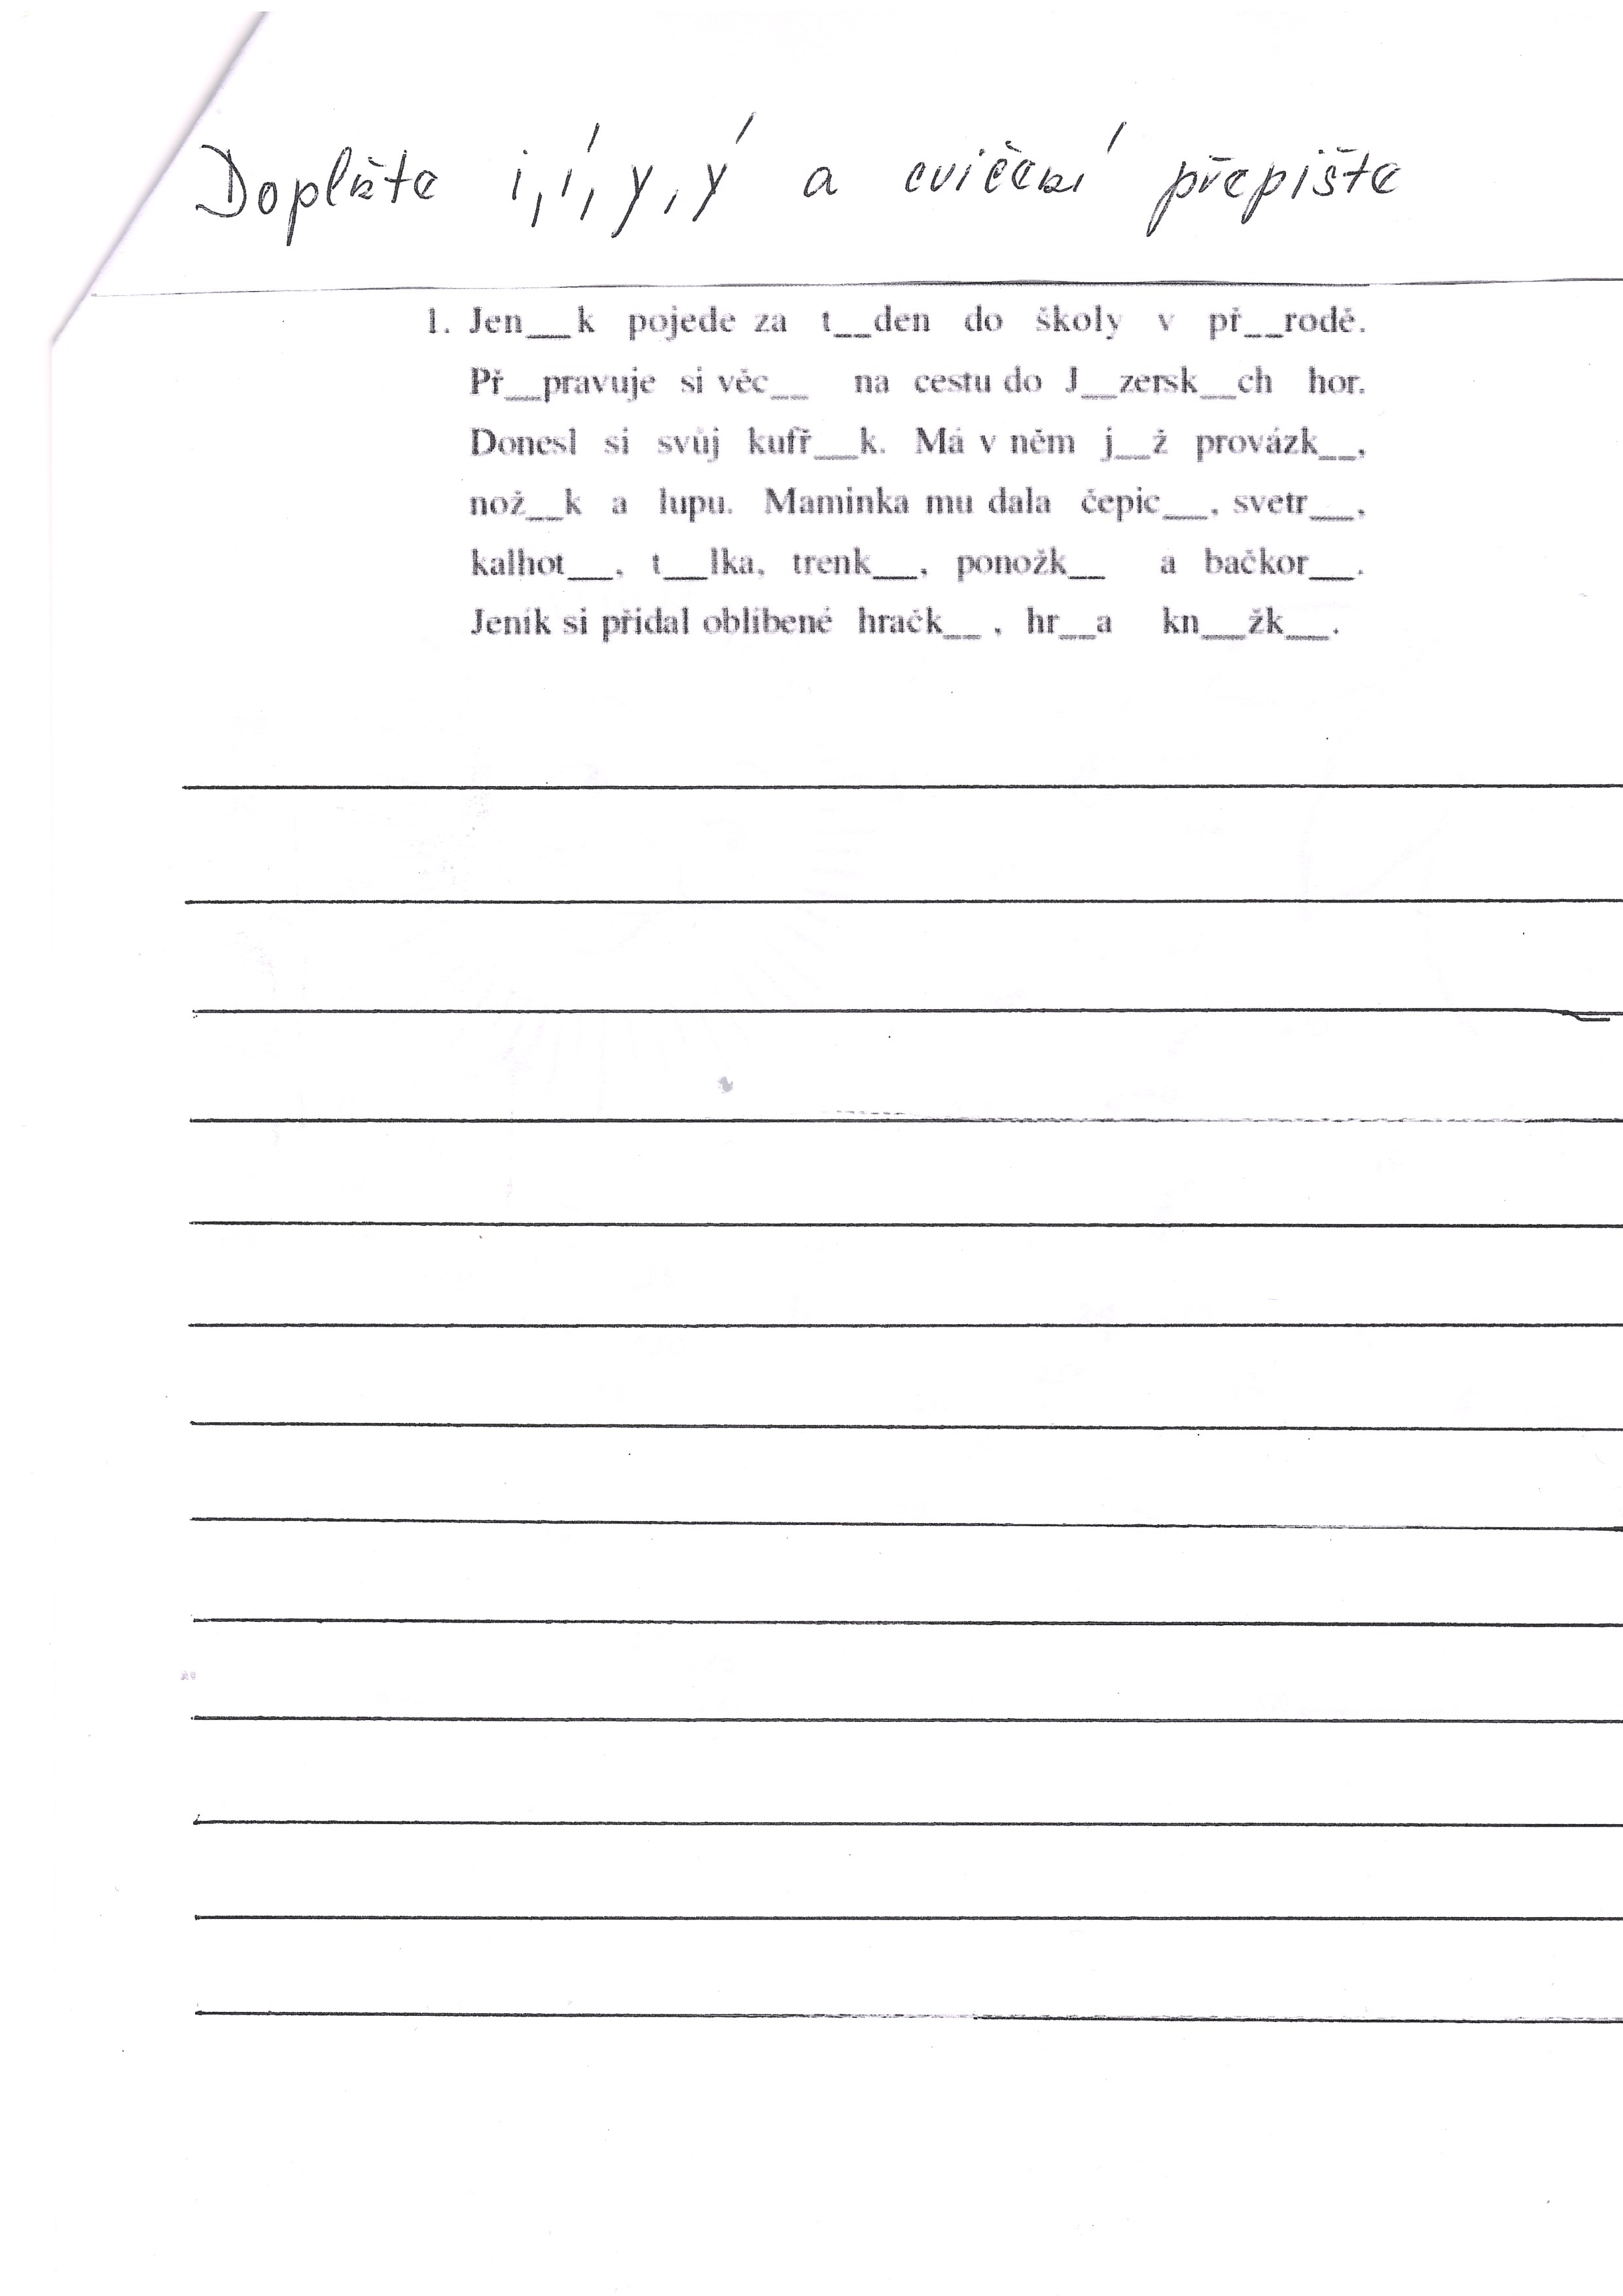 Doplňte i, í, y, ý a cvičení přepište
1. Jen__k pojede za t__den do školy v př__rodě.
Př__pravuje si věc__ na cestu do J__zersk__ch hor.
Donesl si svůj kufř__k. Má v něm j__ž provázk__,
nož__k a lupu. Maminka mu dala čepic__, svetr__,
kalhot__, t__lka, trenk__, ponožk__ a bačkor__.
Jeník si přidal oblíbené hračk__ , hr__a kn__žk__.